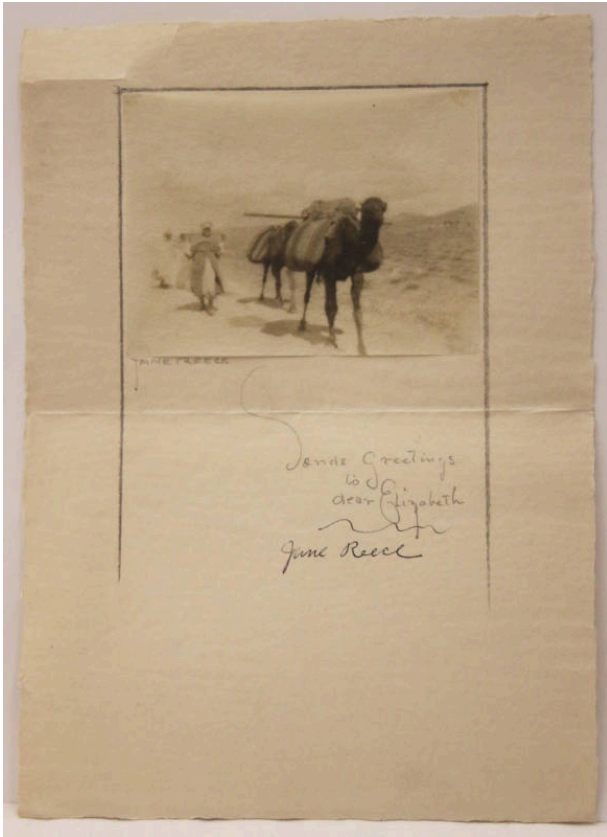 JANE REECE
Sends Greetings
to
dear Elizabeth
Jane Reece